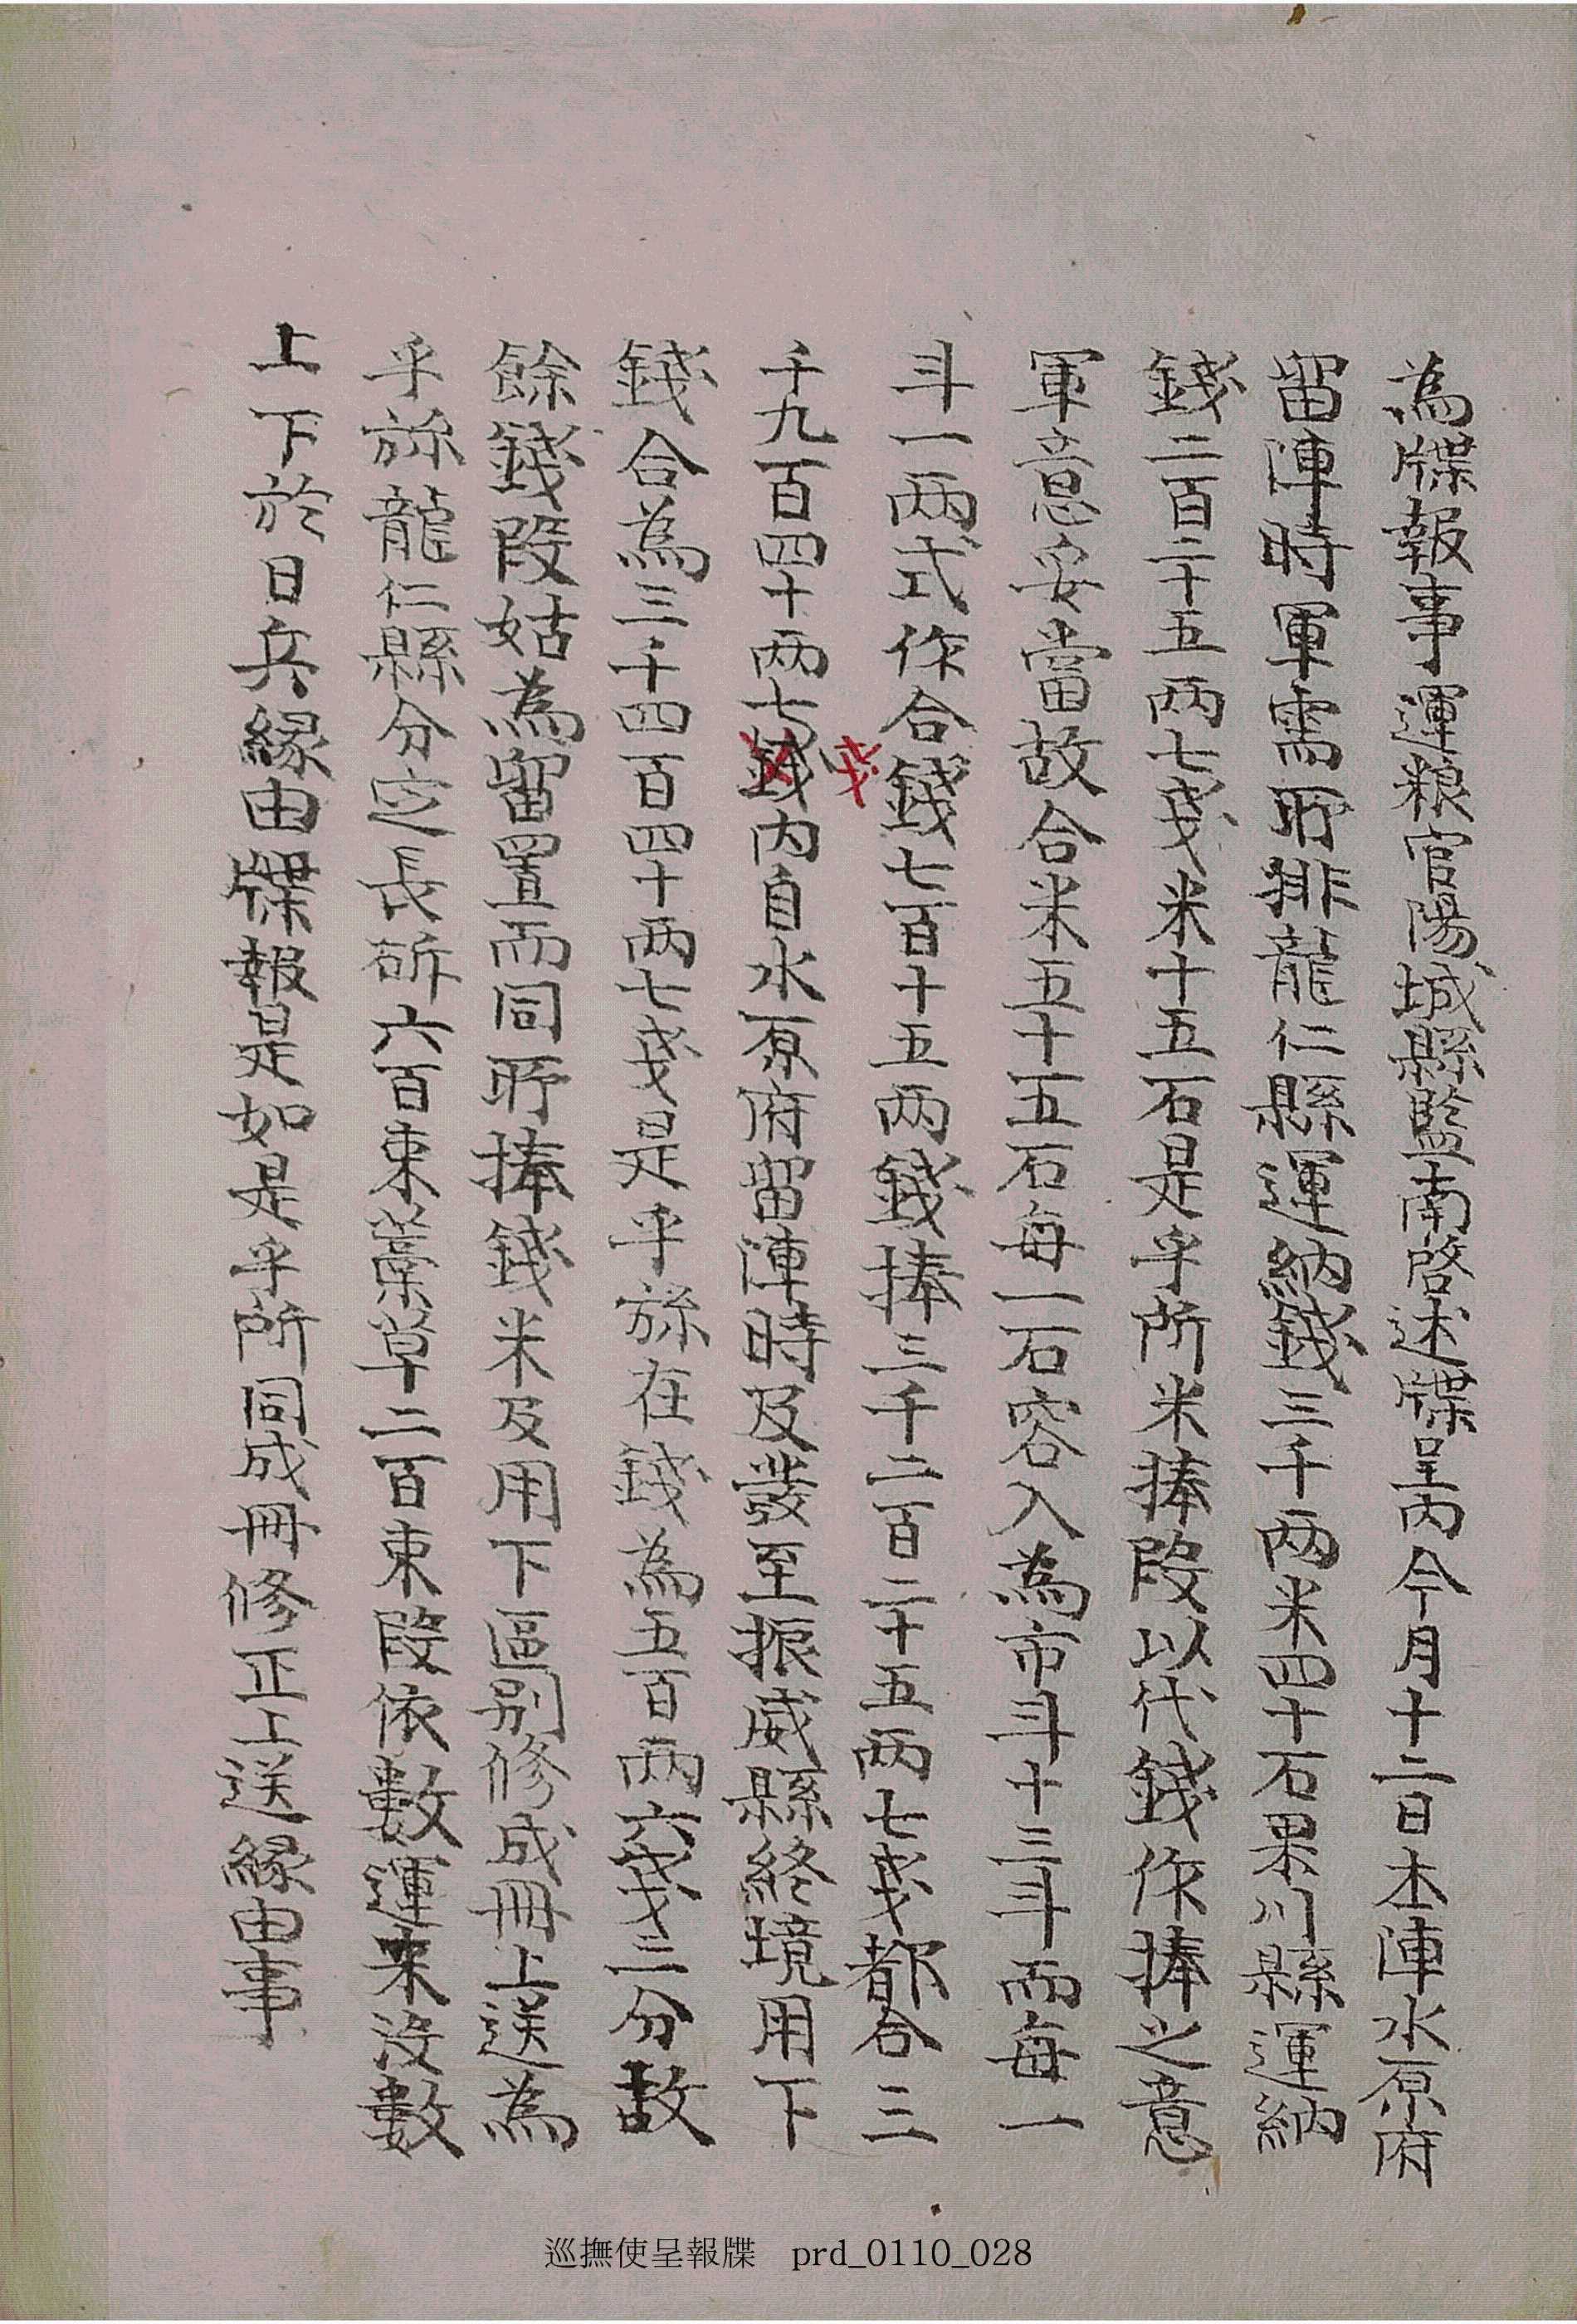 為牒報事運粮官陽城縣監南啓述牒呈內今月十二日本陣水原府
留陣時軍需所排龍仁縣運納錢三千兩米四十石果川縣運納
錢二百二十五兩七戔米十五石是乎所米捧段以代錢作捧之意
軍意妥當故合米五十五石每一石容入為市斗十三斗而每一
斗一兩式作合錢七百十五兩錢捧三千二百二十五兩七戔都合三
千九百四十兩七錢內自水原府留陣時及發至振威縣終境用下
戔
錢合為三千四百四十兩七戔是乎旀在錢為五百兩六戔三分故
餘錢段姑為留置而同所捧錢米及用下區別修成冊上送為
乎旀龍仁縣分定長斫六百束藁草二百束段依數運來沒數
上下於日兵緣由牒報是如是乎所同成冊修正上送緣由事
巡撫使呈報牒 prd_0110_028